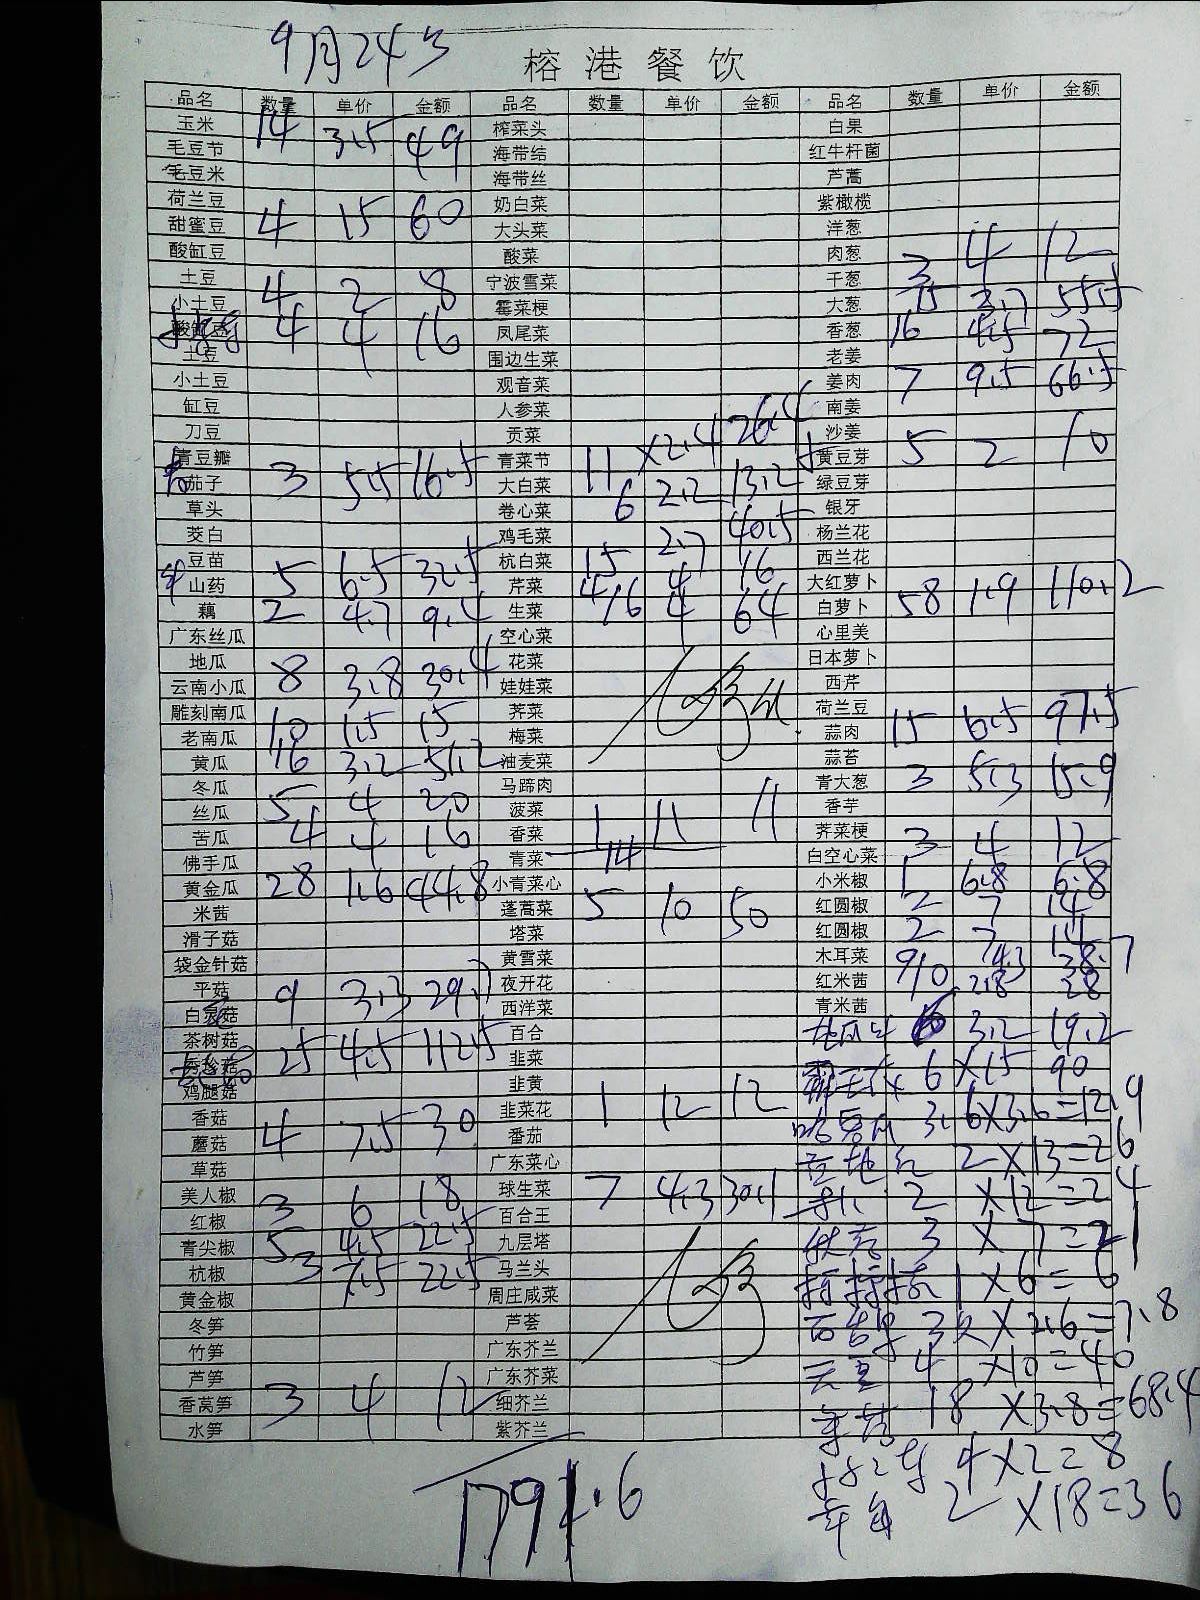 9月24号
榕港餐饮
品名 数量 单价 金额 品名 数量 单价 金额 品名 数量 单价 金额
玉米 14 3.5 49 榨菜头 白果
毛豆节 海带结 红牛杆菌
毛豆米 海带丝 芦蒿
荷兰豆 奶白菜 紫橄榄
甜蜜豆 4 15 60 大头菜 洋葱
酸缸豆 酸菜 肉葱
土豆 宁波雪菜 干葱 3 4 12
小土豆 4 2 8 霉菜梗 大葱 15 3.7 55.5
酸缸豆 4 4 16 凤尾菜 香葱 16 4.5 72
土豆 围边生菜 老姜
小土豆 观音菜 姜肉 7 9.5 66.5
缸豆 人参菜 南姜
刀豆 贡菜 沙姜
青豆瓣 青菜节 11 ×2.4 26.4 黄豆芽 5 2 10
茄子 3 5.5 16.5 大白菜 6 2.2 13.2 绿豆芽
草头 卷心菜 银牙
茭白 鸡毛菜 杨兰花
豆苗 杭白菜 15 2.7 40.5 西兰花
山药 5 6.5 32.5 芹菜 4 4 16 大红萝卜
藕 2 4.7 9.4 生菜 16 4 64 白萝卜 58 1.9 110.2
广东丝瓜 空心菜 心里美
地瓜 花菜 日本萝卜
云南小瓜 8 3.8 30.4 娃娃菜 西芹
雕刻南瓜 荠菜 荷兰豆
老南瓜 10 1.5 15 梅菜 蒜肉 15 6.5 97.5
黄瓜 16 3.2 51.2 油麦菜 蒜苔
冬瓜 马蹄肉 青大葱 3 5.3 15.9
丝瓜 5 4 20 菠菜 香芋
苦瓜 4 4 16 香菜 1 11 11 荠菜梗
佛手瓜 青菜 14 白空心菜 3 4 12
黄金瓜 28 1.6 44.8 小青菜心 小米椒 1 6.8 6.8
米茜 蓬蒿菜 5 10 50 红圆椒 2 7 14
滑子菇 塔菜 红圆椒 2 7 14
袋金针菇 黄雪菜 木耳菜 9 4.3 38.7
平菇 夜开花 红米茜 10 2.8 28
白灵菇 9 3.3 29.7 西洋菜 青米茜
茶树菇 百合 6 3.2 19.2
秀珍菇 25 4.5 112.5 韭菜 6 ×15 90
鸡腿菇 韭黄 3.6×3.6=12.9
香菇 韭菜花 1 12 12
蘑菇 4 7.5 30 番茄 2 ×13=26
草菇 广东菜心
美人椒 球生菜 7 4.3 30.1 2 ×12=24
红椒 3 6 18 百合王
青尖椒 5 4.5 22.5 九层塔 3 × 7=21
杭椒 3 7.5 22.5 马兰头 1×6=6
黄金椒 周庄咸菜
冬笋 芦荟 3 ×2.6=7.8
竹笋 广东芥兰
芦笋 广东芥菜 4 ×10=40
香莴笋 3 4 12 细芥兰 18 ×3.8=68.4
水笋 紫芥兰
4×2=8
2 ×18=36
1791.6